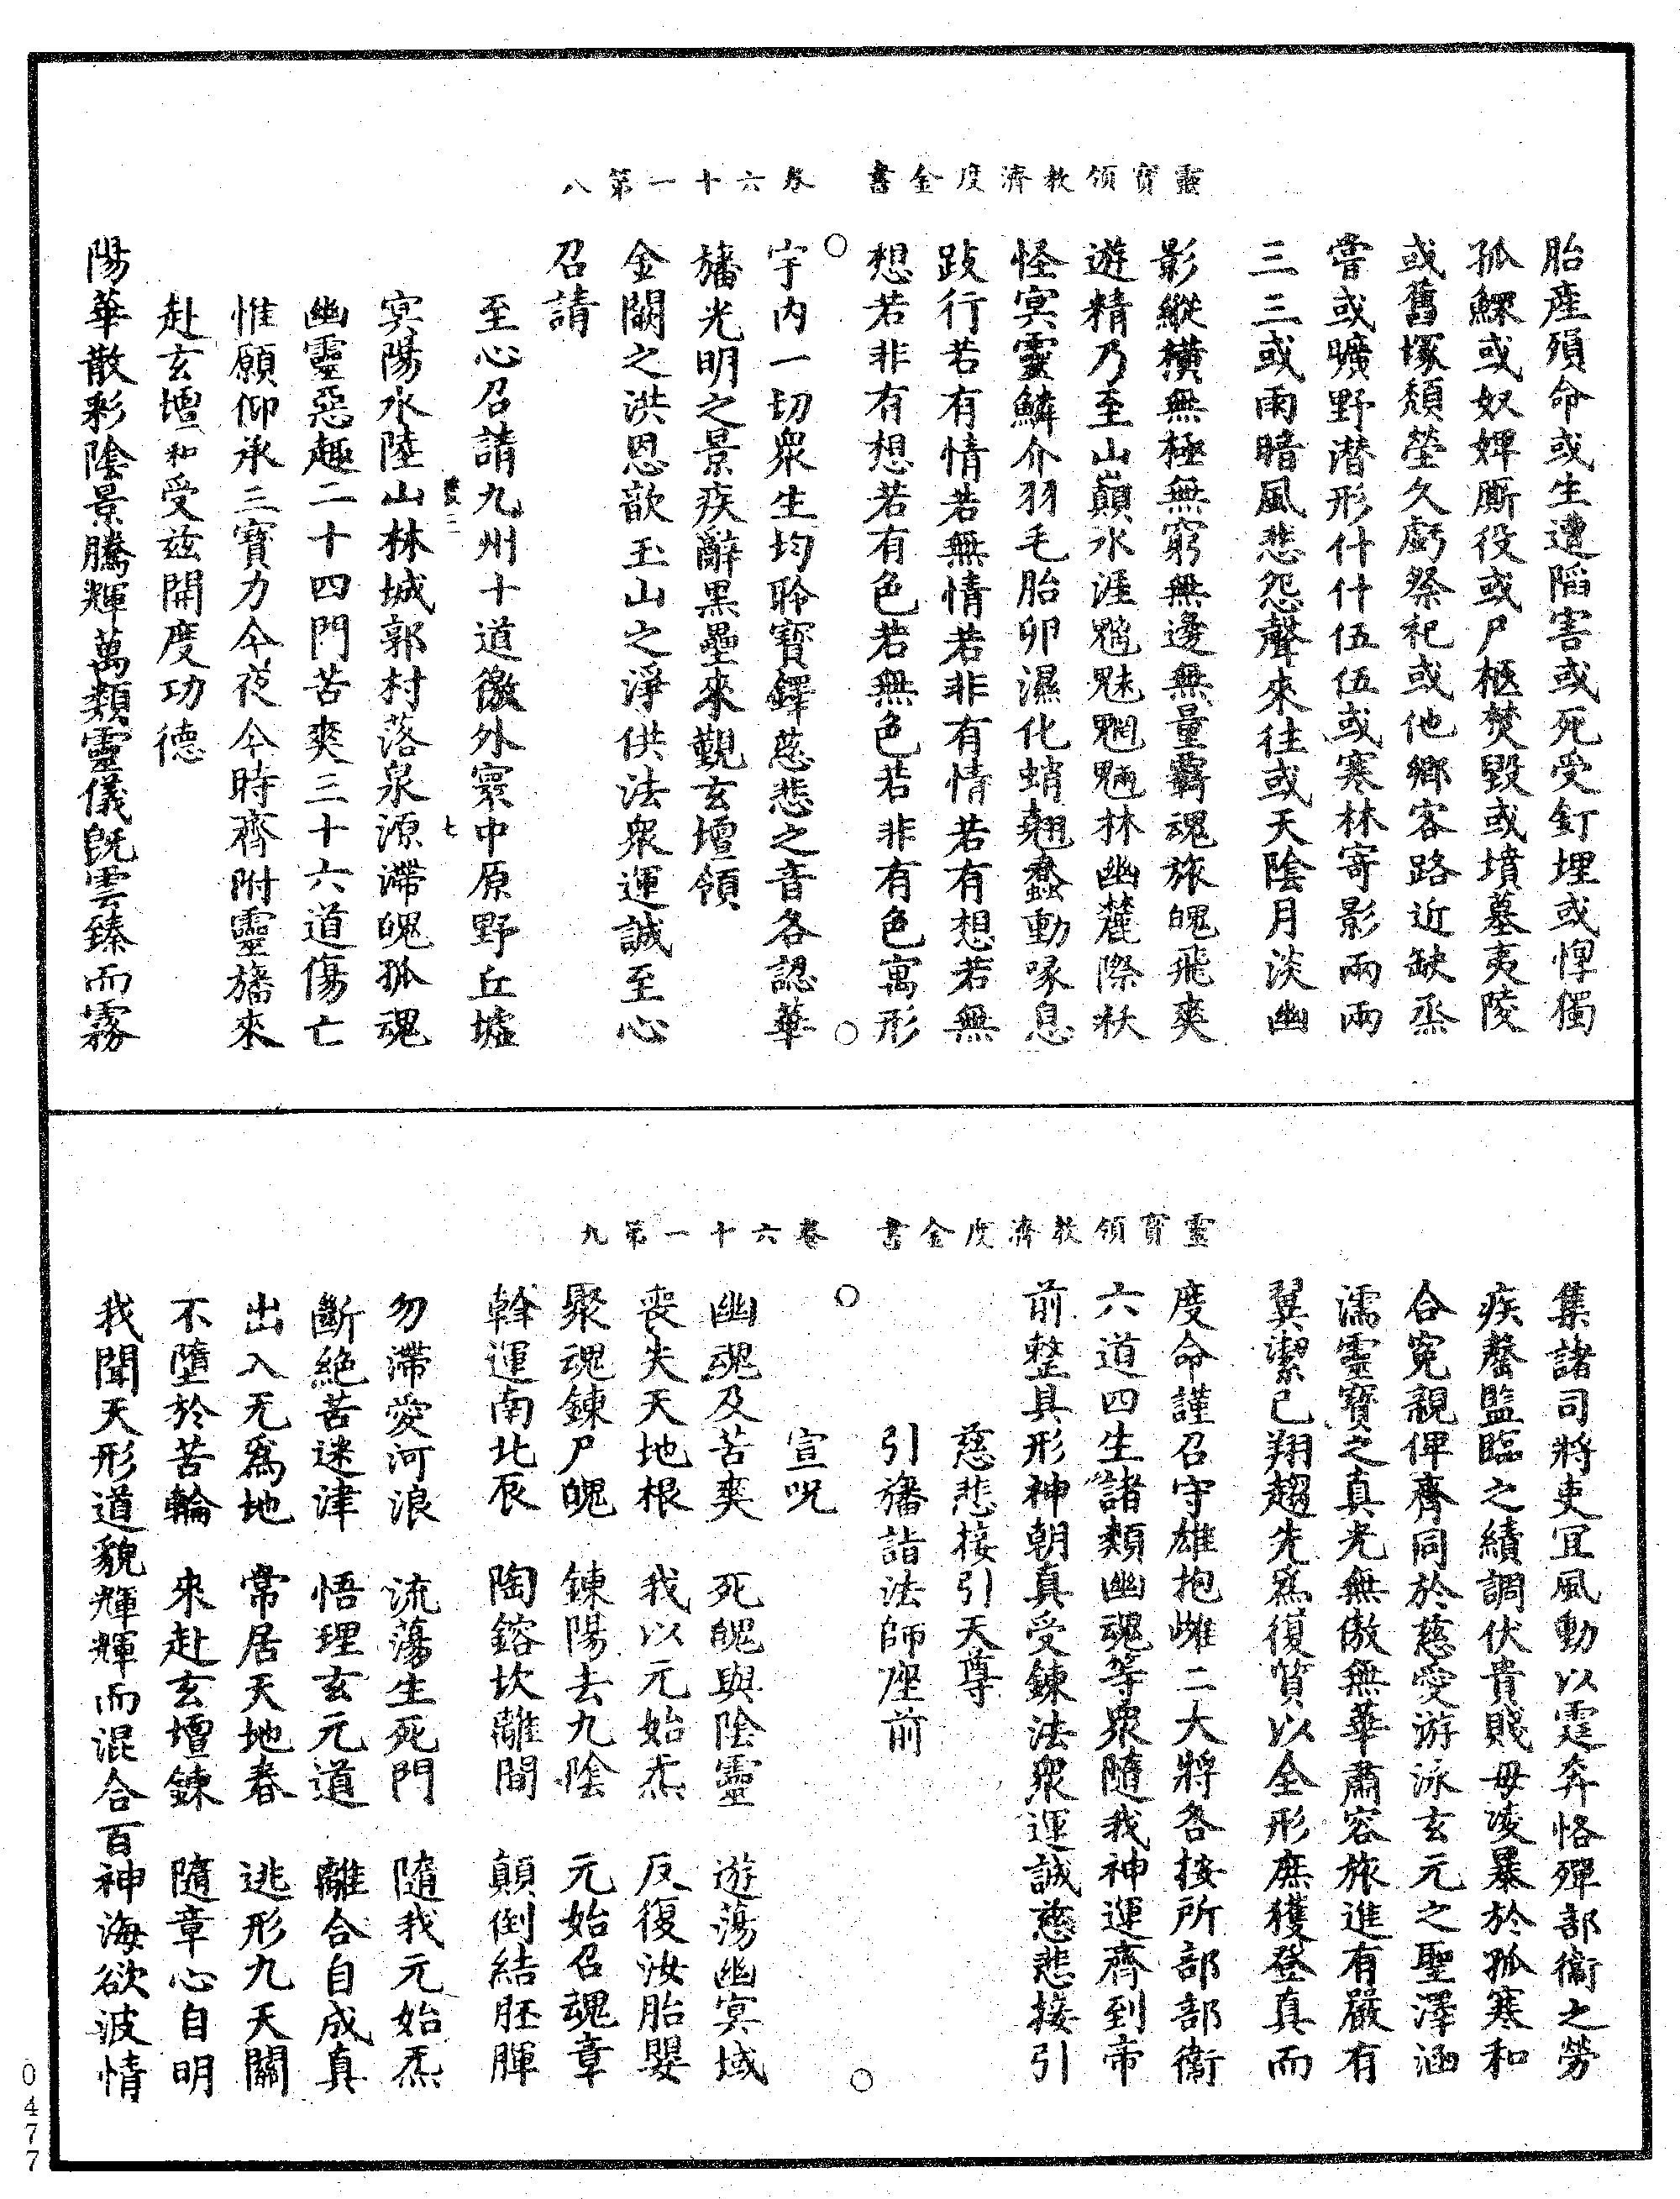 靈寶領教濟度金書　卷六十一第八
胎產殞命或生遭陷害或死受釘埋或惸獨
孤鰥或奴婢厮役或尸柩焚毀或墳墓夷陵
或舊塚頹塋久虧祭祀或他鄉客路近缺烝
甞或曠野潛形什什伍伍或寒林寄影兩兩
三三或雨暗風悲怨聲來往或天陰月淡幽
影縱橫無極無窮無邊無量羇魂旅魄飛爽
遊精乃至山巔水涯魑魅魍魎林幽麓際秋
怪冥靈鱗介羽毛胎卵濕化蛸翹蠢動喙息
跂行若有情若無情若非有情若有想若無
想若非有想若有色若無色若非有色寓形
宇內一切眾生均聆寶鐸慈悲之音各認華
旛光明之景疾辭黑壘來覲玄壇領
金闕之洪恩歆玉山之淨供法眾運誠至心
召請
至心召請九州十道徼外寰中原野丘墟
冥陽水陸山林城郭村落泉源滯魄孤魂
幽靈惡趣二十四門苦爽三十六道傷亡
惟願仰承三寶力今夜今時齊附靈旛來
赴玄壇和受茲開度功德
陽華散彩陰景騰輝萬類靈儀既雲臻而霧
靈寶領教濟度金書　卷六十一第九
集諸司將吏宜風動以霆奔恪殫部衛之勞
疾罄監臨之績調伏貴賤毋凌暴於孤寒和
合冤親俾齊同於慈愛游泳玄元之聖澤涵
濡靈寶之真光無傲無華肅容旅進有嚴有
翼潔己翔趨先為復質以全形庶獲登真而
度命謹召守雄抱雌二大將各按所部部衛
六道四生諸類幽魂等眾隨我神運齊到帝
前整具形神朝真受鍊法眾運誠慈悲接引
慈悲接引天尊
引旛詣法師座前
宣呪
幽魂及苦爽　死魄與陰靈　遊蕩幽冥域
喪失天地根　我以元始炁　反復汝胎嬰
聚魂鍊尸魄　鍊陽去九陰　元始召魂章
斡運南北辰　陶鎔坎離間　顛倒結胚腪
勿滯愛河浪　流蕩生死門　隨我元始炁
斷絕苦迷津　悟理玄元道　離合自成真
出入无為地　常居天地春　逃形九天關
不墮於苦輪　來赴玄壇鍊　隨章心自明
我聞天形道貌輝輝而混合百神海欲波情
0477